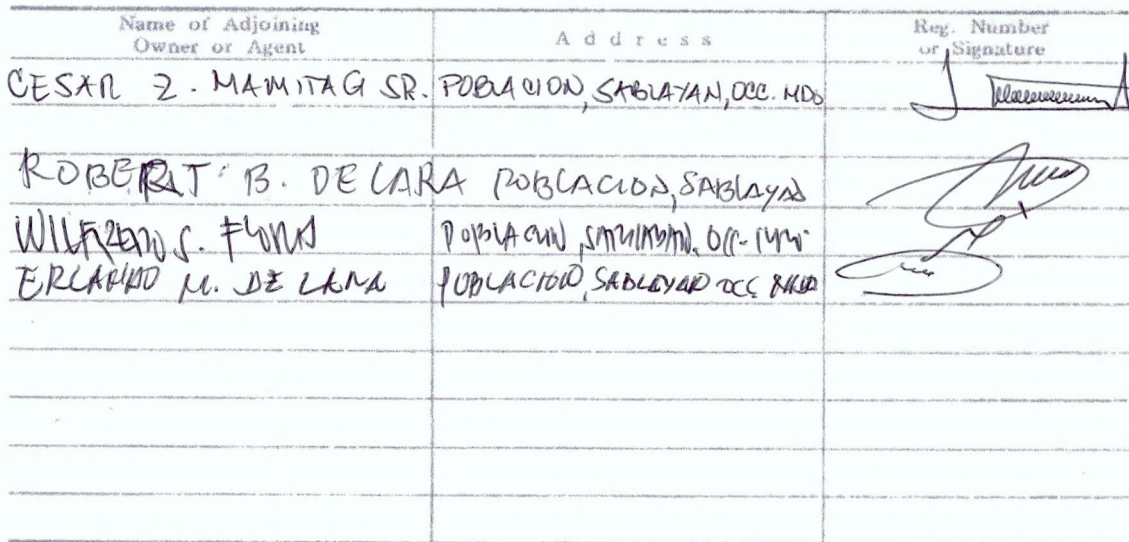 Name of Adjoining Owner or Agent
Address
Reg. Number or Signature
CESAR Z. MAMITAG SR. POBLACION, SABLAYAN, OCC. MDO
ROBERT B. DE LARA POBLACION, SABLAYAN
S. POBLACION,
M. DE LARA POBLACION, SABLAYAN OCC